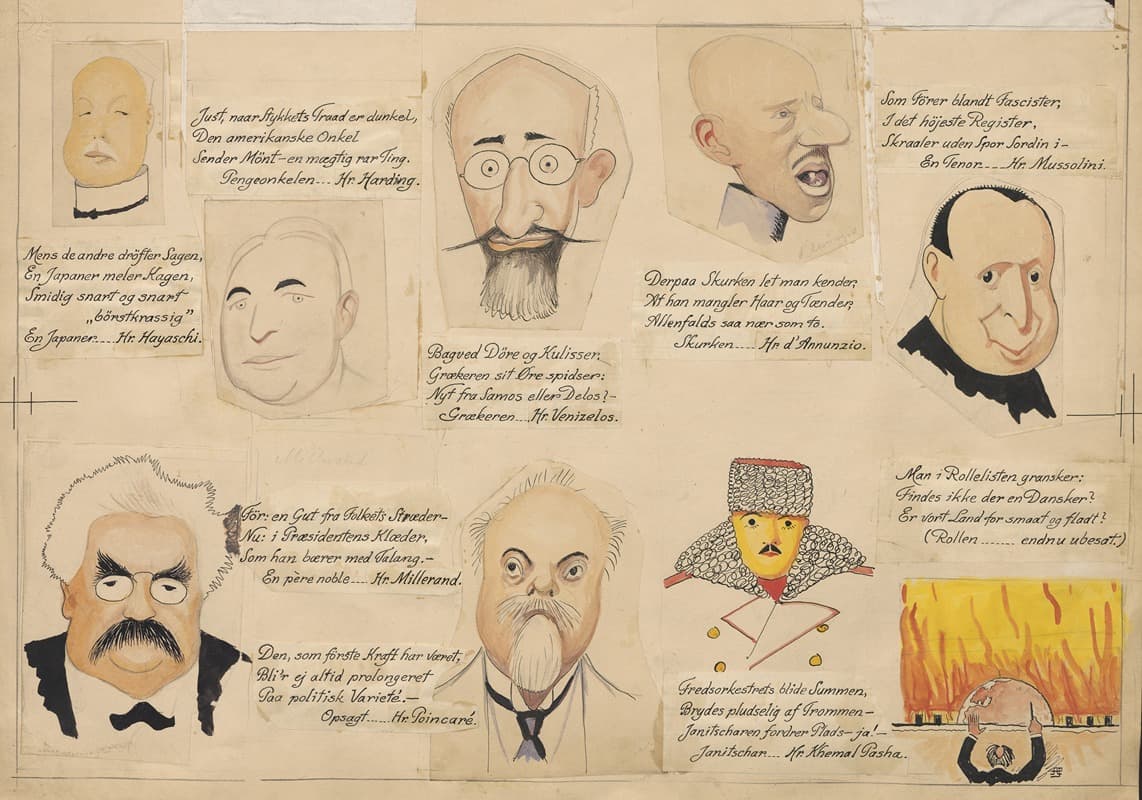 Just, naar Stykkets Traad er dunkel,
Den amerikanske Onkel
Sender Mönt – en mægtig rar Ting.
Pengeonkelen.... Hr. Harding.
Som Förer blandt Fascister,
I det höjeste Register,
Skraaler uden Spor Sordin i –
En Tenor..... Hr. Mussolini.
Mens de andre dröfter Sagen,
En Japaner meler Kagen,
Smidig snart og snart
„börstkrassig”
En Japaner..... Hr. Hayaschi.
Derpaa Skurken let man kender,
At han mangler Haar og Tænder,
Allenfalds saa nær som to.
Skurken..... Hr. d'Annunzio.
Bagved Döre og Kulisser.
Grækeren sit Øre spidser:
Nyt fra Samos eller Delos? –
Grækeren.... Hr. Venizelos.
För: en Gut fra Folkets Stræder –
Nu: i Præsidentens Klæder,
Som han bærer med Talang. –
En père noble.... Hr. Millerand.
Man i Rollelisten gransker:
Findes ikke der en Dansker?
Er vort Land for smaat og fladt?
(Rollen ....... endnu ubesat.)
Den, som förste Kraft har været,
Bli'r ej altid prolongeret
Paa politisk Varieté. –
Opsagt...... Hr. Poincaré.
Fredsorkestrets blide Summen,
Brydes pludselig af Trommen –
Janitscharen fordrer Plads – ja! –
Janitschar.... Hr. Khemal Pasha.